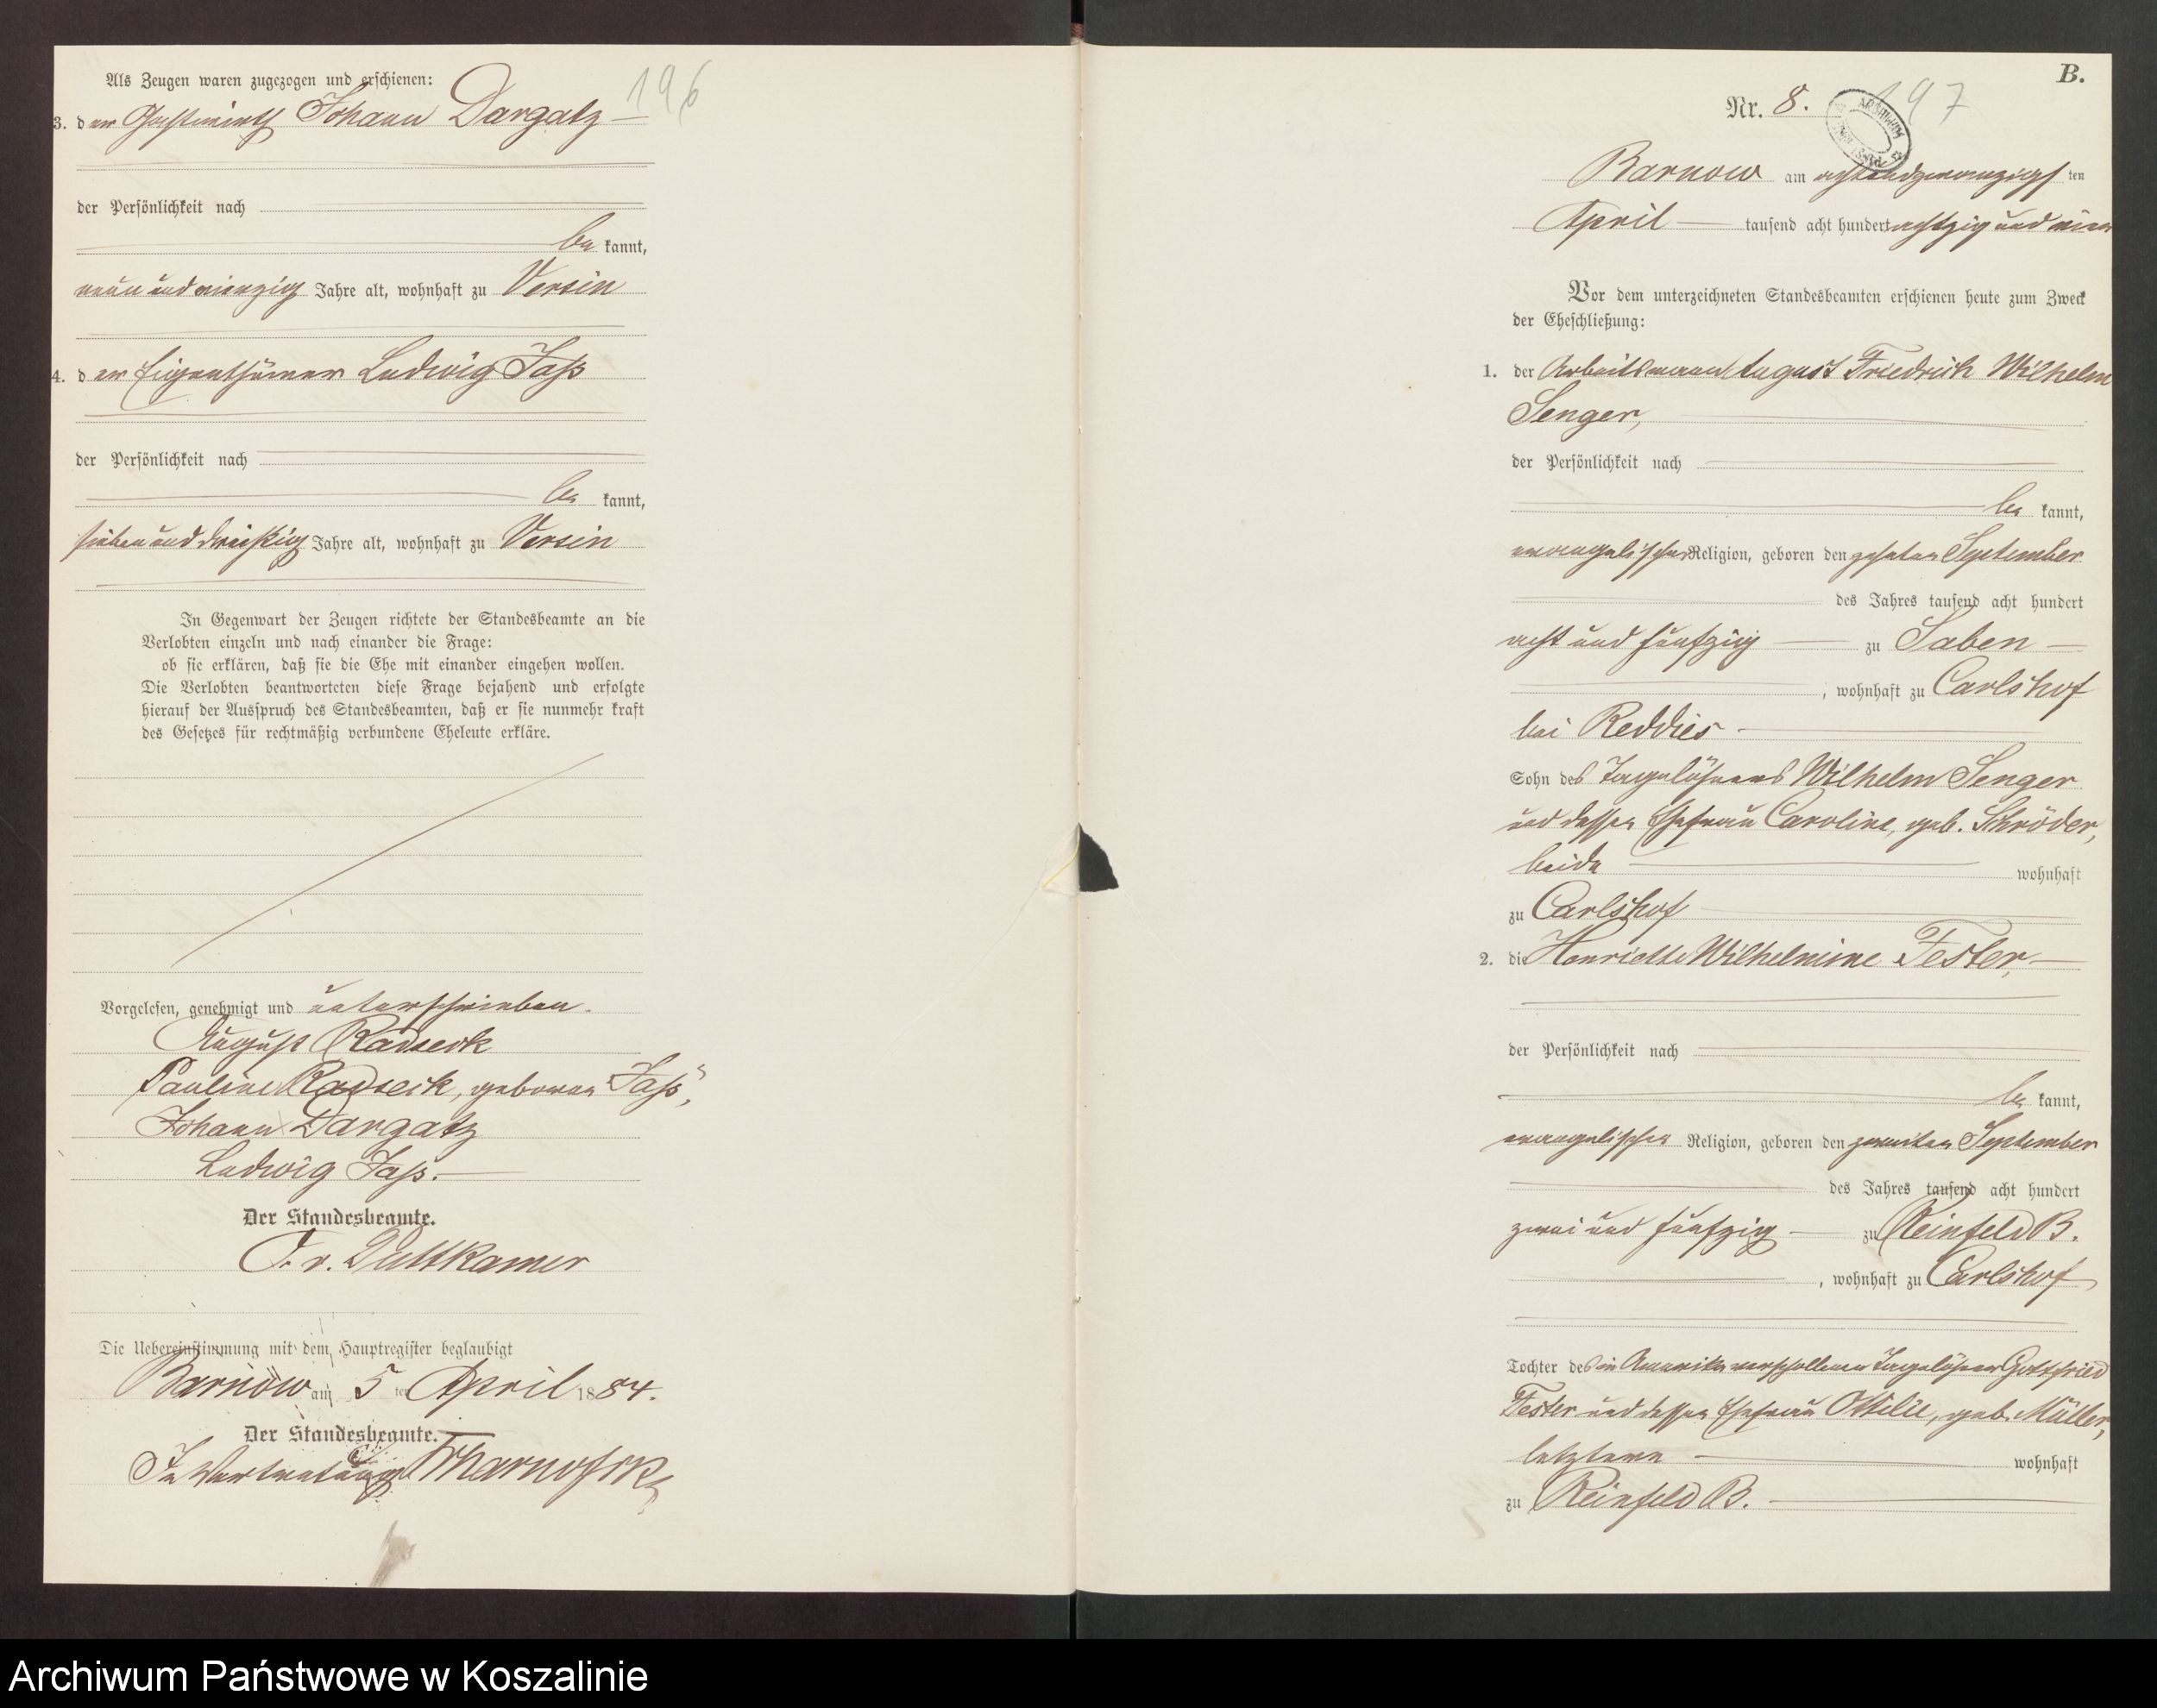 196
Als Zeugen waren zugezogen und erschienen:
3. der Gastwirth Johann Dargatz
der Persönlichkeit nach
be kannt,
neun und vierzig Jahre alt, wohnhaft zu Versin
4. der Eigenthümer Ludwig Jaß
der Persönlichkeit nach
be kannt,
sieben und dreißig Jahre alt, wohnhaft zu Versin
In Gegenwart der Zeugen richtete der Standesbeamte an die
Verlobten einzeln und nach einander die Frage:
ob sie erklären, daß sie die Ehe mit einander eingehen wollen.
Die Verlobten beantworteten diese Frage bejahend und erfolgte
hierauf der Ausspruch des Standesbeamten, daß er sie nunmehr kraft
des Gesetzes für rechtmäßig verbundene Eheleute erkläre.
Vorgelesen, genehmigt und unterschrieben.
August Radseck
Pauline Radseck, geboren Jaß,
Johann Dargatz
Ludwig Jaß.
Der Standesbeamte.
v. Puttkamer
Die Uebereinstimmung mit dem Hauptregister beglaubigt
Barnow am 5 ten April 1884.
Der Standesbeamte.
In Vertretung
B.
Nr. 8.
197
Barnow am achtundzwanzigsten
April tausend acht hundert achtzig und vier
Vor dem unterzeichneten Standesbeamten erschienen heute zum Zweck
der Eheschließung:
1. der Arbeitsmann August Friedrich Wilhelm
Senger,
der Persönlichkeit nach
be kannt,
evangelischer Religion, geboren den zehnten September
des Jahres tausend acht hundert
acht und fünfzig zu Saben
, wohnhaft zu Carlshof
bei Reddies
Sohn des Tagelöhners Wilhelm Senger
und dessen Ehefrau Caroline, geb. Schröder,
beide wohnhaft
zu Carlshof
2. die Henriette Wilhelmine Fester,
der Persönlichkeit nach
be kannt,
evangelischer Religion, geboren den zweiten September
des Jahres tausend acht hundert
zwei und fünfzig zu Reinfeld B.
, wohnhaft zu Carlshof
Tochter des in Amerika verschollenen Tagelöhner Gottfried
Fester und dessen Ehefrau Ottilie, geb. Müller,
letztere wohnhaft
zu Reinfeld B.
Archiwum Państwowe w Koszalinie